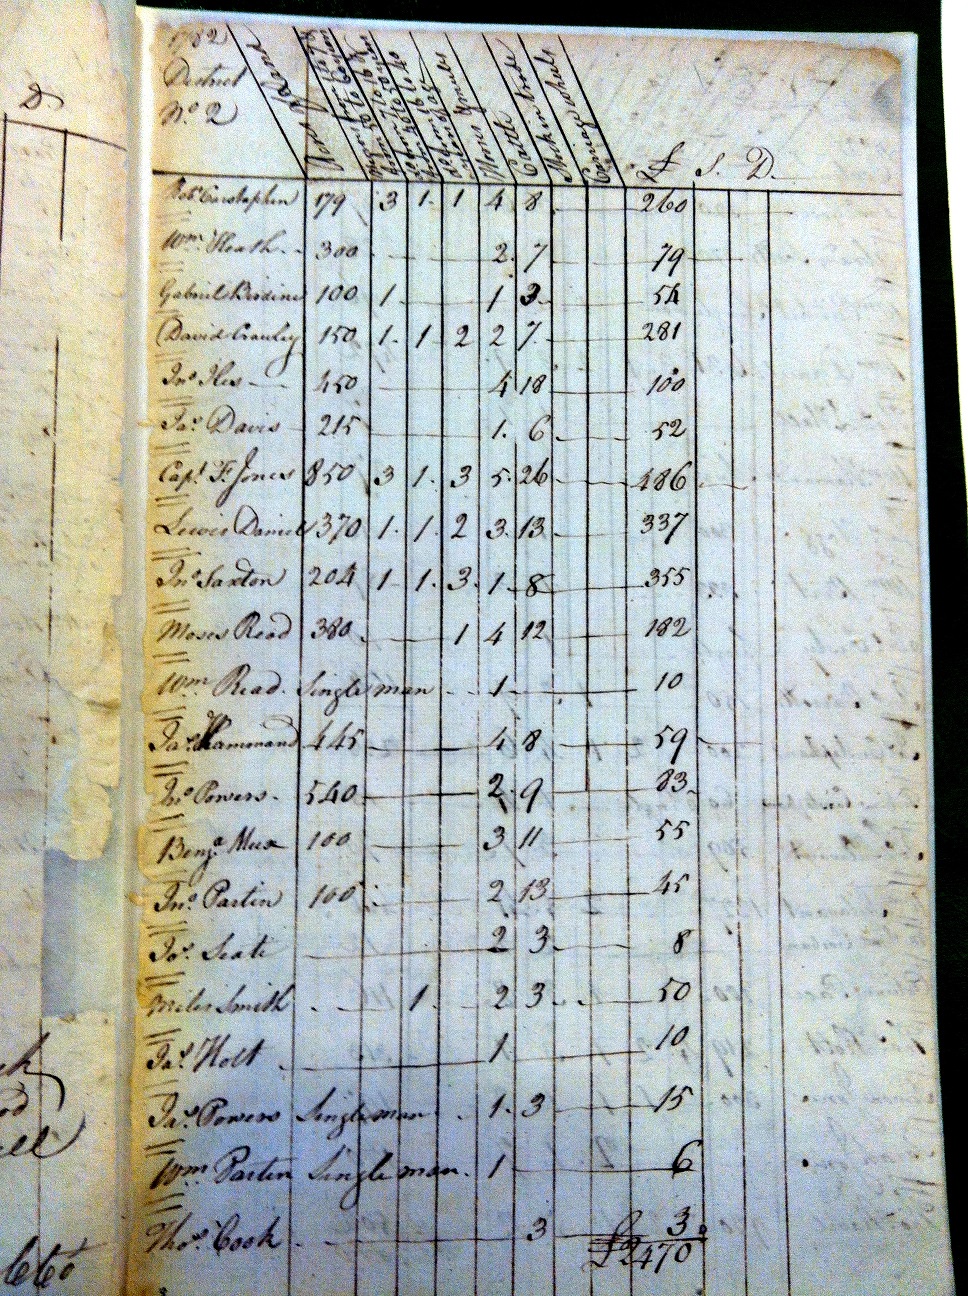 1782
District
No. 2
Names
Cattle
£ S. D.
Robt. Carstaphen 179 3 1 1 4 8 260
Wm. Heath 300 2 7 79
Gabriel 100 1 1 3 54
David Crawley 150 1 1 2 2 7 281
Jno. Iles 450 4 18 100
Jas. Davis 215 1 6 52
Capt. F. Jones 850 3 1 3 5 26 486
Lewis Daniel 370 1 1 2 3 13 337
Jno. Saxton 204 1 1 3 1 8 355
Moses Read 380 1 4 12 182
Wm. Read. Single man 1 10
Jas. Hammand 445 4 8 59
Jno. Powers 540 2 9 83
Benja. 100 3 11 55
Jno. Partin 100 2 13 45
Jos. Seate 2 3 8
Miles Smith 1 2 3 50
Jas. Holt 1 10
Jas. Powers Single man 1 3 15
Wm. Partin Single man. 1 6
Thos. Cook 3 3
£2470
D